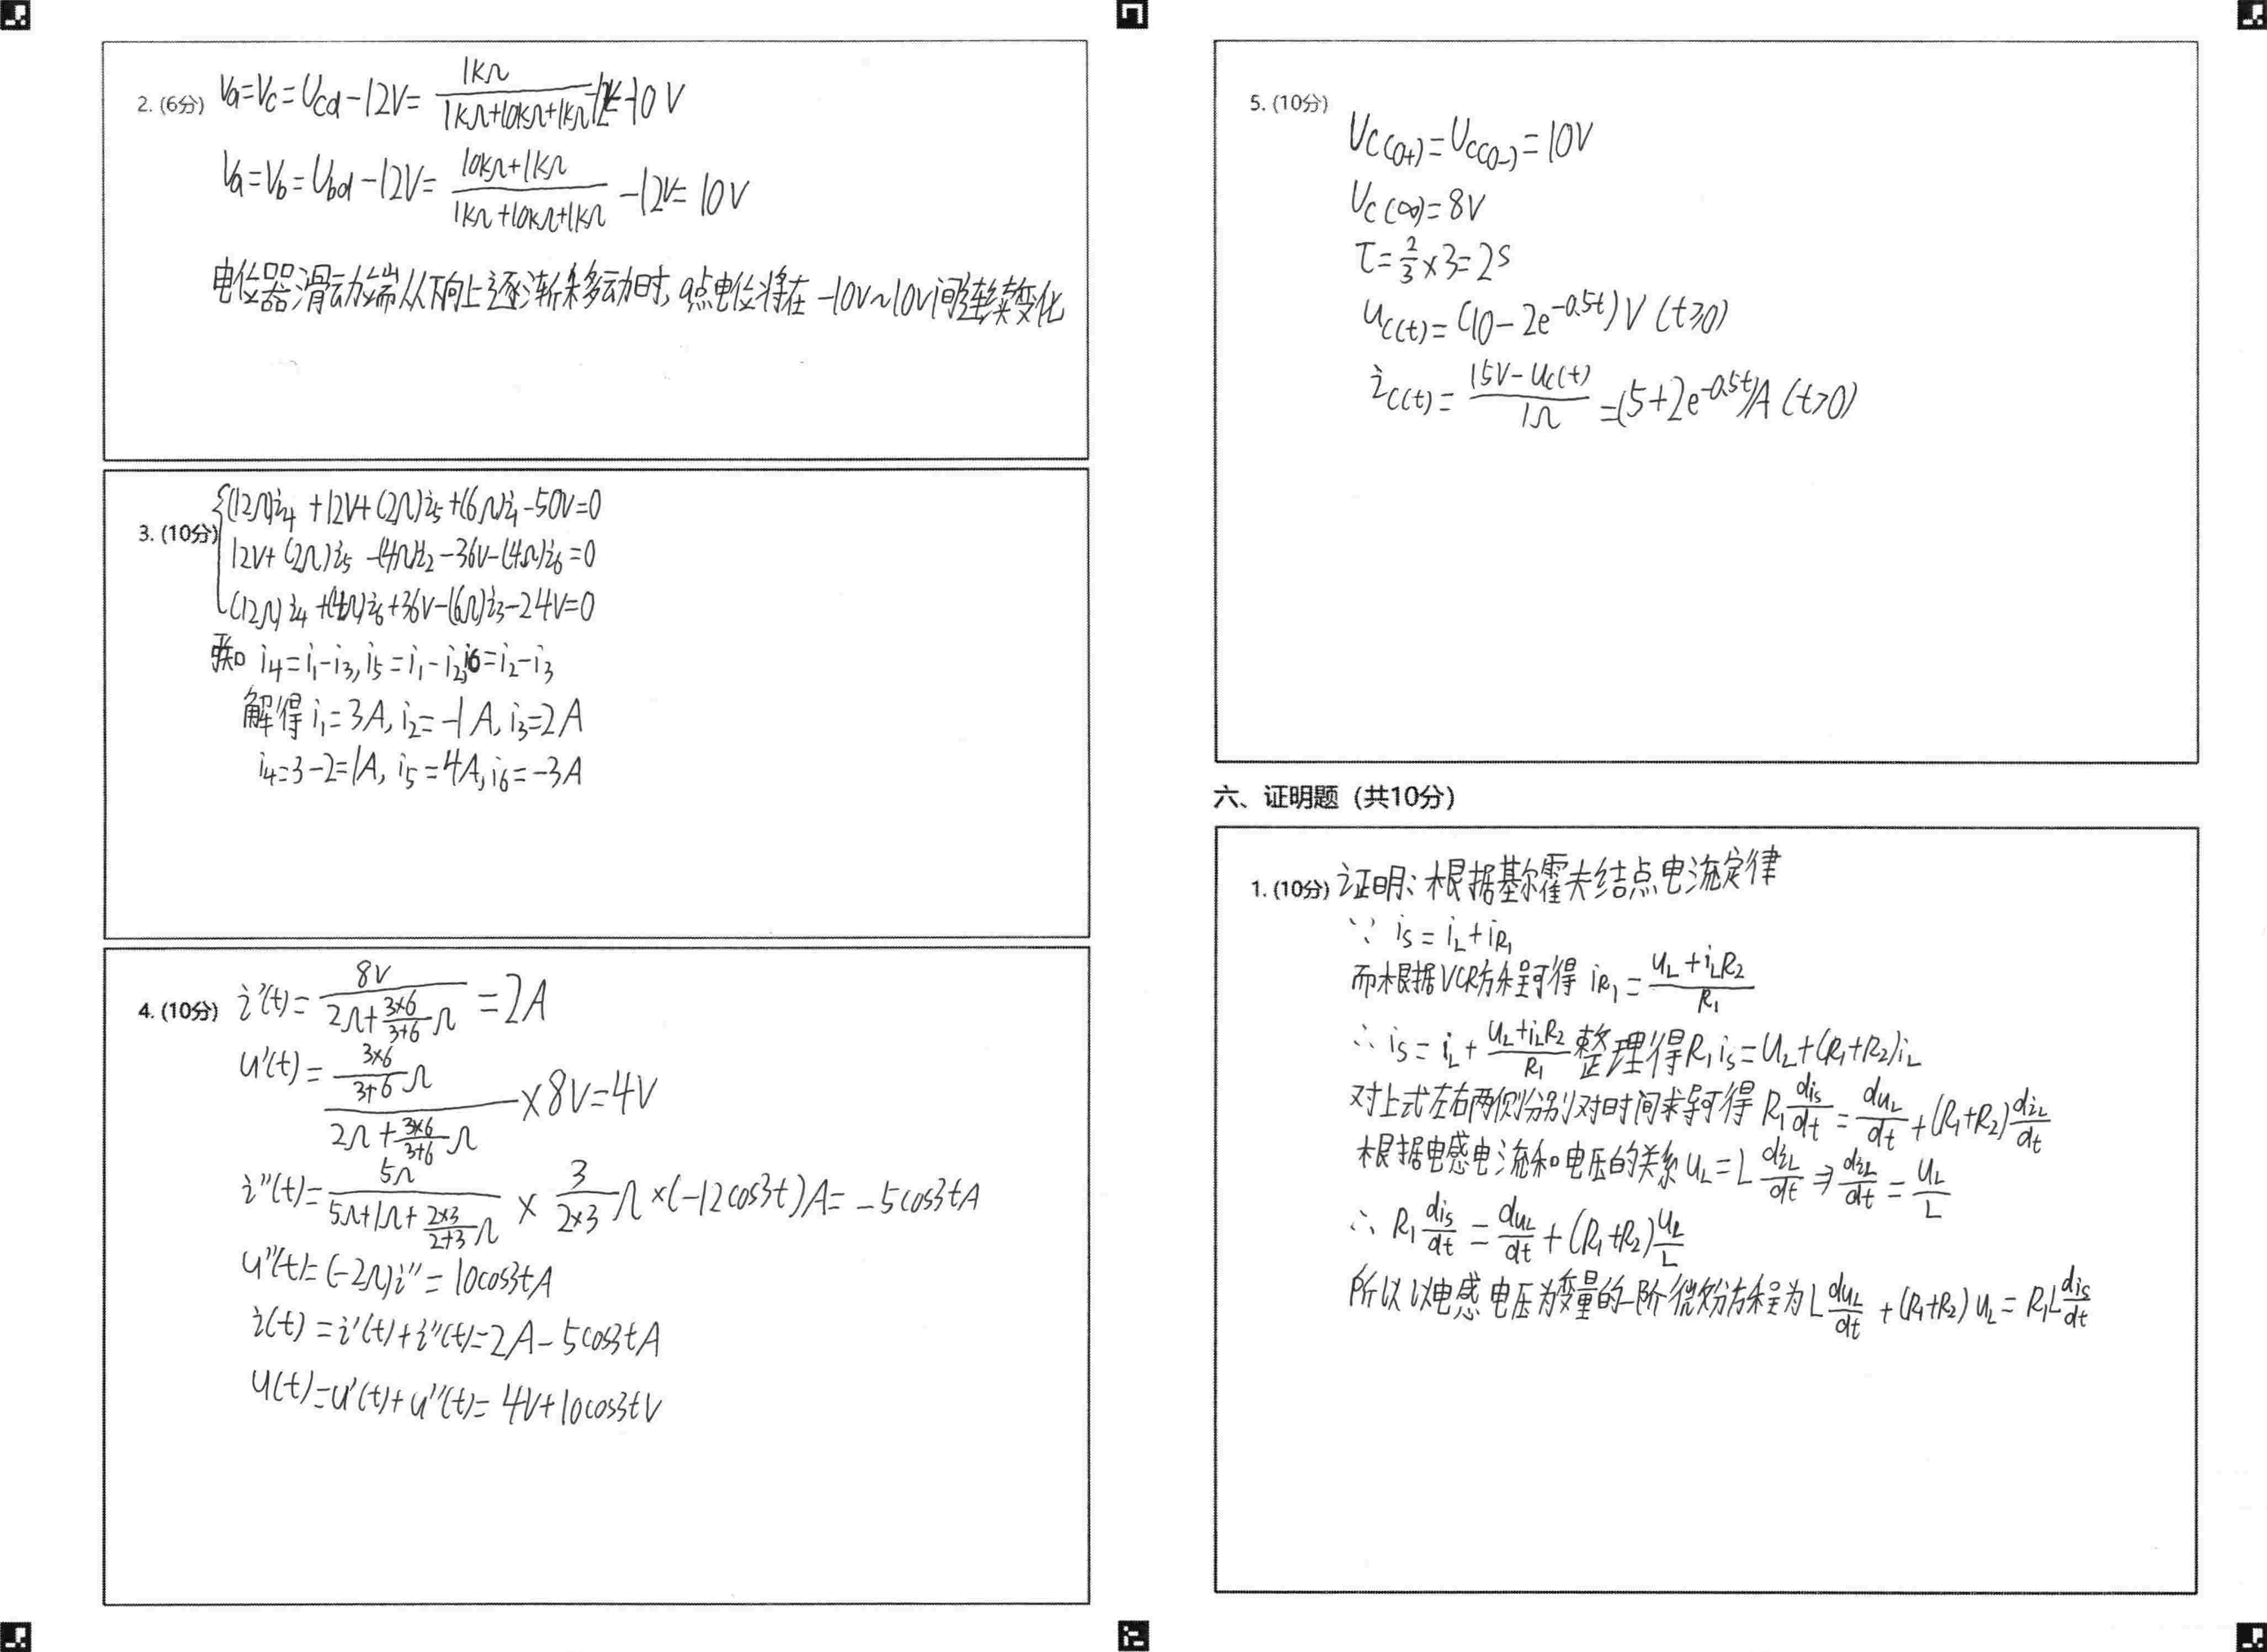 2. (6分) Va=Vc=Ucd-12V= 1kΩ/(1kΩ+10kΩ+1kΩ) -12V=-10V
Va=Vb=Ubd-12V= (10kΩ+1kΩ)/(1kΩ+10kΩ+1kΩ) -12V=10V
电位器滑动端从下向上逐渐移动时,a点电位将在-10V~10V间连续变化
3. (10分) {(12Ω)i4+12V+(2Ω)i5+(6Ω)i1-50V=0
12V+(2Ω)i5-(4Ω)i2-36V-(4Ω)i6=0
(12Ω)i4+(4Ω)i6+36V-(6Ω)i3-24V=0
i4=i1-i3,i5=i1-i2,i6=i2-i3
解得i1=3A,i2=-1A,i3=2A
i4=3-2=1A,i5=4A,i6=-3A
4. (10分) i'(t)= 8V/(2Ω+(3×6)/(3+6)Ω) =2A
u'(t)= ((3×6)/(3+6)Ω)/(2Ω+(3×6)/(3+6)Ω) ×8V=4V
i''(t)= 5Ω/(5Ω+1Ω+(2×3)/(2+3)Ω) × 3/(2×3) Ω×(-12cos3t)A=-5cos3tA
u''(t)=(-2Ω)i''=10cos3tA
i(t)=i'(t)+i''(t)=2A-5cos3tA
u(t)=u'(t)+u''(t)=4V+10cos3tV
5. (10分)
UC(0+)=UC(0-)=10V
UC(∞)=8V
τ=2/3×3=2s
uC(t)=(10-2e^-0.5t)V (t≥0)
iC(t)= (15V-uC(t))/1Ω =(5+2e^-0.5t)A (t>0)
六、证明题（共10分）
1. (10分) 证明:根据基尔霍夫结点电流定律
∵ is=iL+iR1
而根据VCR方程可得 iR1=(uL+iLR2)/R1
∴ is=iL+(uL+iLR2)/R1 整理得R1is=uL+(R1+R2)iL
对上式左右两侧分别对时间求导可得 R1 dis/dt = duL/dt +(R1+R2) diL/dt
根据电感电流和电压的关系uL=L diL/dt ⇒ diL/dt = uL/L
∴ R1 dis/dt = duL/dt +(R1+R2) uL/L
所以以电感电压为变量的一阶微分方程为L duL/dt +(R1+R2)uL=R1L dis/dt